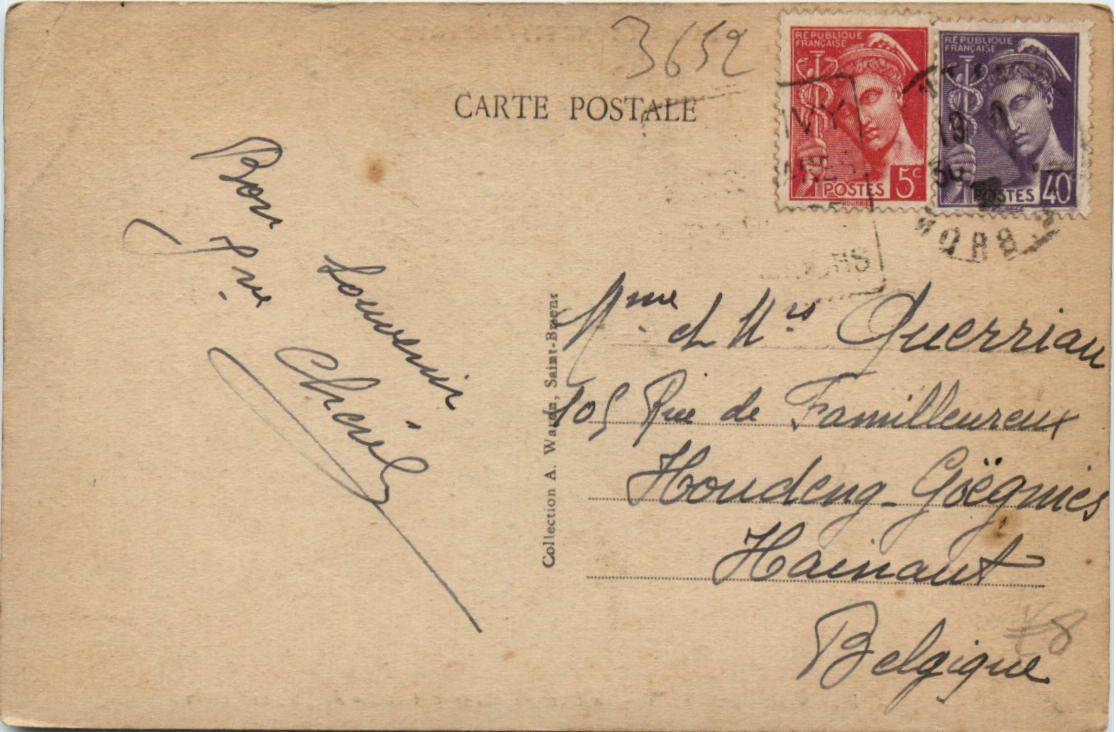 3652
CARTE POSTALE
RÉPUBLIQUE
FRANÇAISE
POSTES 5c
RÉPUBLIQUE
FRANÇAISE
POSTES 40c
IVY
MORB
Bon Souvenir
Collection A. Warda, Saint-Brieuc
Mme et Mrs Querriau
105 Rue de Familleureux
Houdeng-Goëgnies
Hainaut
Belgique
€8